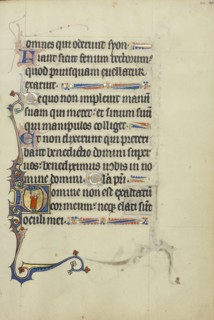 omnes qui oderunt syon
Fiant sicut fenum tectorum
quod priusquam euellatur
exaruit
De quo non impleuit manum
suam qui metet et sinum suum
qui manipulos colliget
Et non dixerunt qui preteri
bant benedictio domini super
uos benediximus uobis in no
mine domini
Domine non est exaltatum
cor meum neque elati sunt
oculi mei